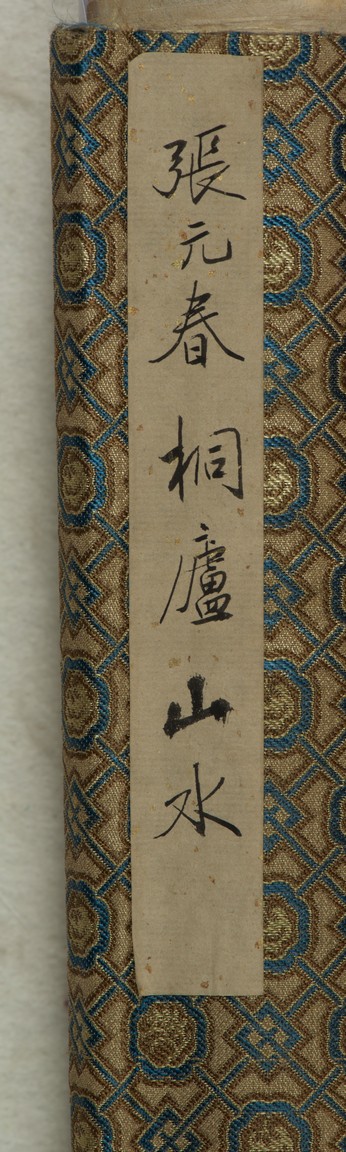 張元春桐廬山水